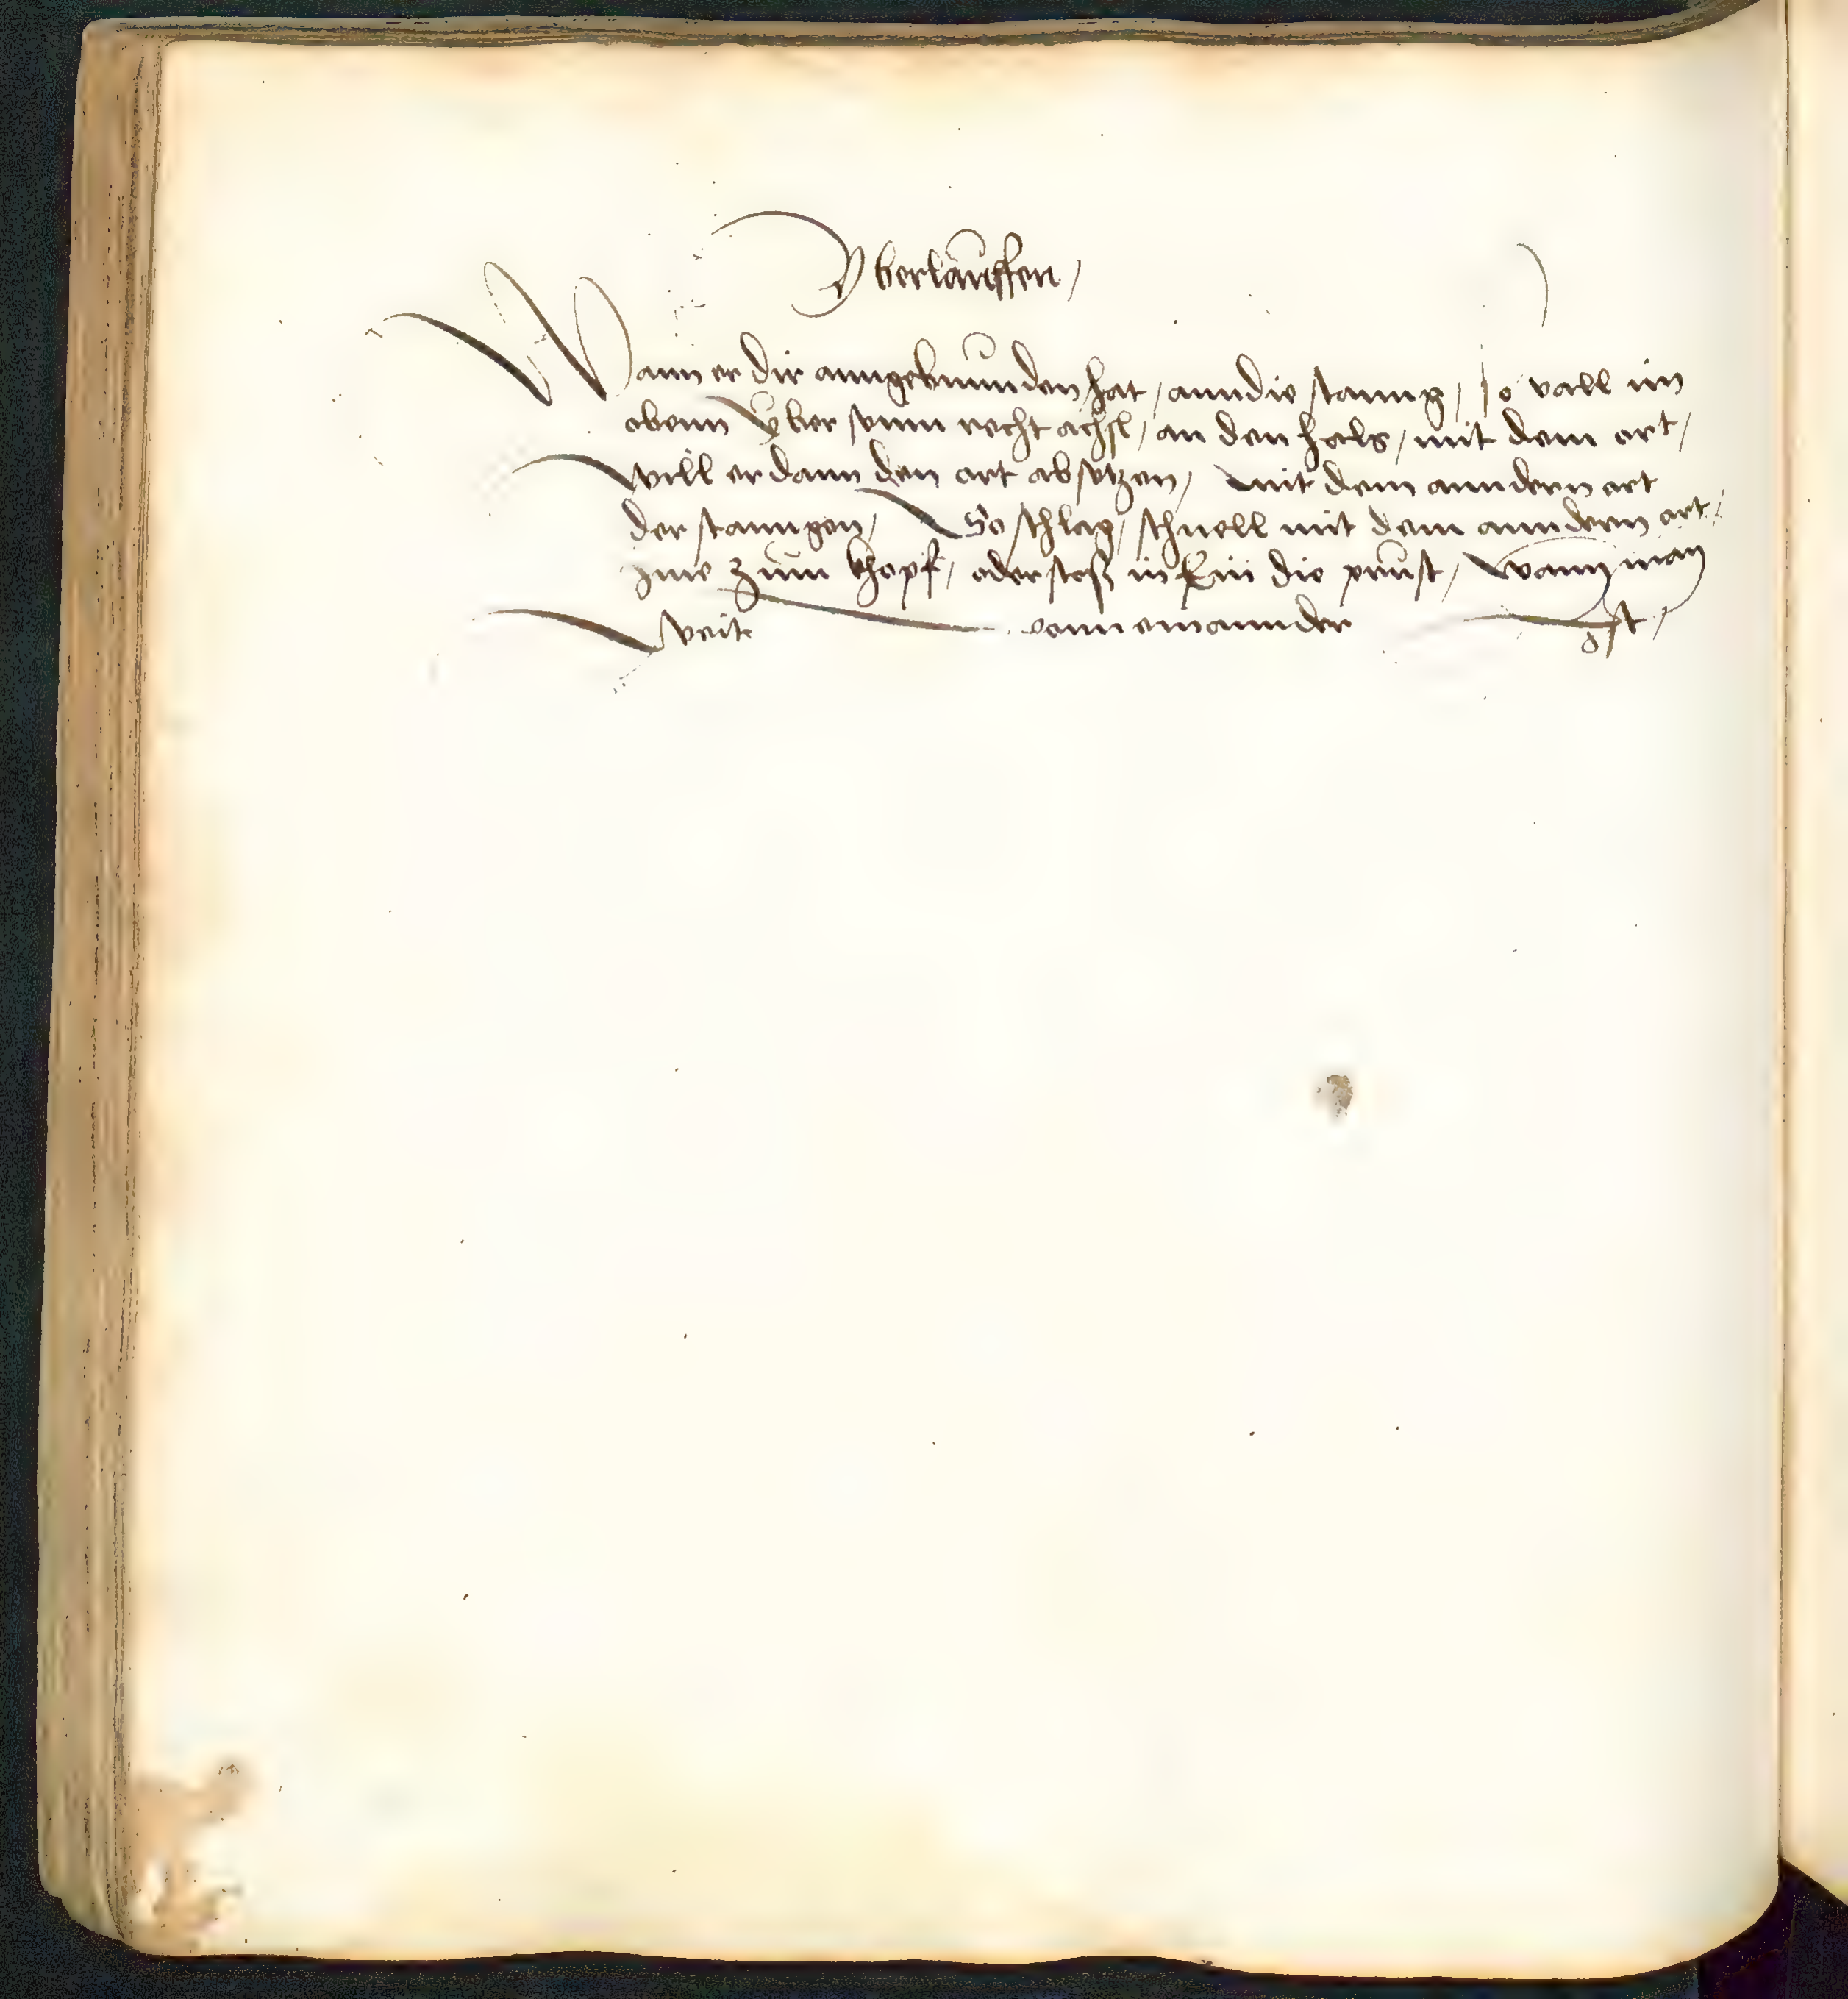 Yberlauffen /
Wann er dir anngebunnden hat / ann die stanng / so vall im
obenn yber seinn recht achsl / an den hals / mit dem ort /
will er dann den ort absetzen / mit dem anndern ort
der stanngen / So schlag / schnell mit dem anndern ort /
ime zum khopf / oder stoß in Ein die prust / wann man
weit vonn einannder ist /